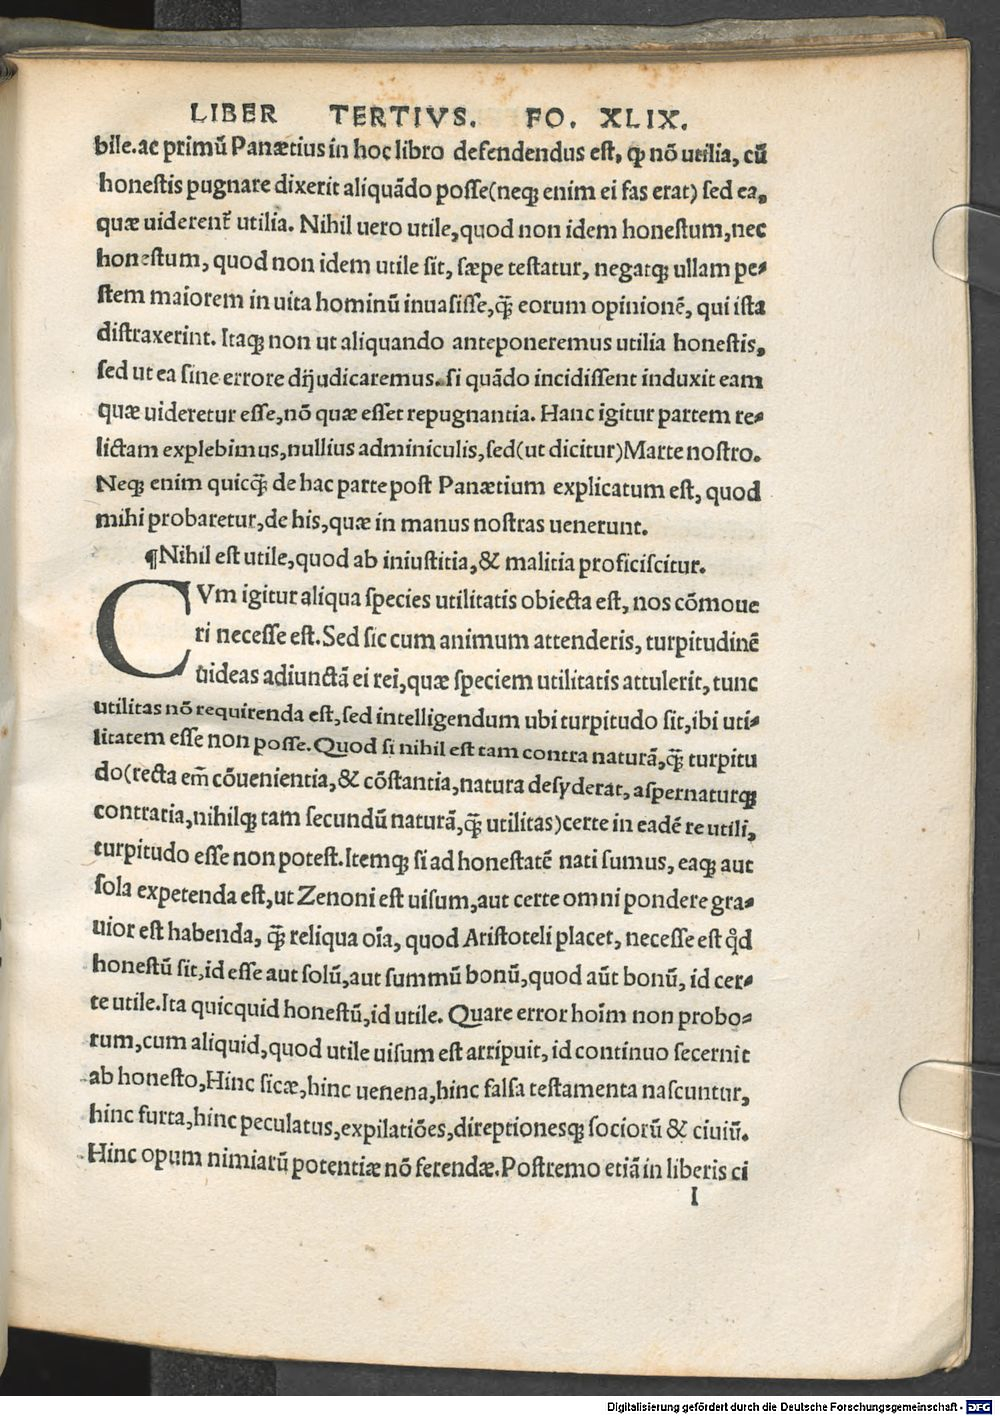 LIBER TERTIVS. FO. XLIX.
bile.ac primũ Panætius in hoc libro defendendus est, ꝙ nõ utilia, cũ
honestis pugnare dixerit aliquãdo posse(neqꝫ enim ei fas erat) sed ea,
quæ uiderent᷑ utilia. Nihil uero utile,quod non idem honestum,nec
honestum, quod non idem utile sit, sæpe testatur, negatqꝫ ullam pe⸗
stem maiorem in uita hominũ inuasisse,q̃ꝫ eorum opinionẽ, qui ista
distraxerint. Itaqꝫ non ut aliquando anteponeremus utilia honestis,
sed ut ea sine errore dijudicaremus. si quãdo incidissent induxit eam
quæ uideretur esse,nõ quæ esset repugnantia. Hanc igitur partem re⸗
lictam explebimus,nullius adminiculis,sed(ut dicitur)Marte nostro.
Neqꝫ enim quicq̃ꝫ de hac parte post Panætium explicatum est, quod
mihi probaretur,de his,quæ in manus nostras uenerunt.
¶Nihil est utile,quod ab iniustitia,& malitia proficiscitur.
CVm igitur aliqua species utilitatis obiecta est, nos cõmoue
ri necesse est.Sed sic cum animum attenderis, turpitudinẽ
uideas adiunctã ei rei,quæ speciem utilitatis attulerit,tunc
utilitas nõ requirenda est,sed intelligendum ubi turpitudo sit,ibi uti⸗
litatem esse non posse.Quod si nihil est tam contra naturã,q̃ꝫ turpitu
do(recta em̃ cõuenientia,& cõstantia,natura desyderat, aspernaturqꝫ
contraria,nihilqꝫ tam secundũ naturã,q̃ꝫ utilitas)certe in eadẽ re utili,
turpitudo esse non potest.Itemqꝫ si ad honestatẽ nati sumus, eaqꝫ aut
sola expetenda est,ut Zenoni est uisum,aut certe omni pondere gra⸗
uior est habenda, q̃ꝫ reliqua oĩa, quod Aristoteli placet, necesse est qd̉
honestũ sit,id esse aut solũ,aut summũ bonũ,quod aũt bonũ, id cer⸗
te utile.Ita quicquid honestũ,id utile. Quare error hoĩm non probo⸗
rum,cum aliquid,quod utile uisum est arripuit, id continuo secernit
ab honesto,Hinc sicæ,hinc uenena,hinc falsa testamenta nascuntur,
hinc furta,hinc peculatus,expilatiões,direptionesqꝫ sociorũ & ciuiũ.
Hinc opum nimiarũ potentiæ nõ ferendæ.Postremo etiã in liberis ci
I
Digitalisierung gefördert durch die Deutsche Forschungsgemeinschaft - DFG